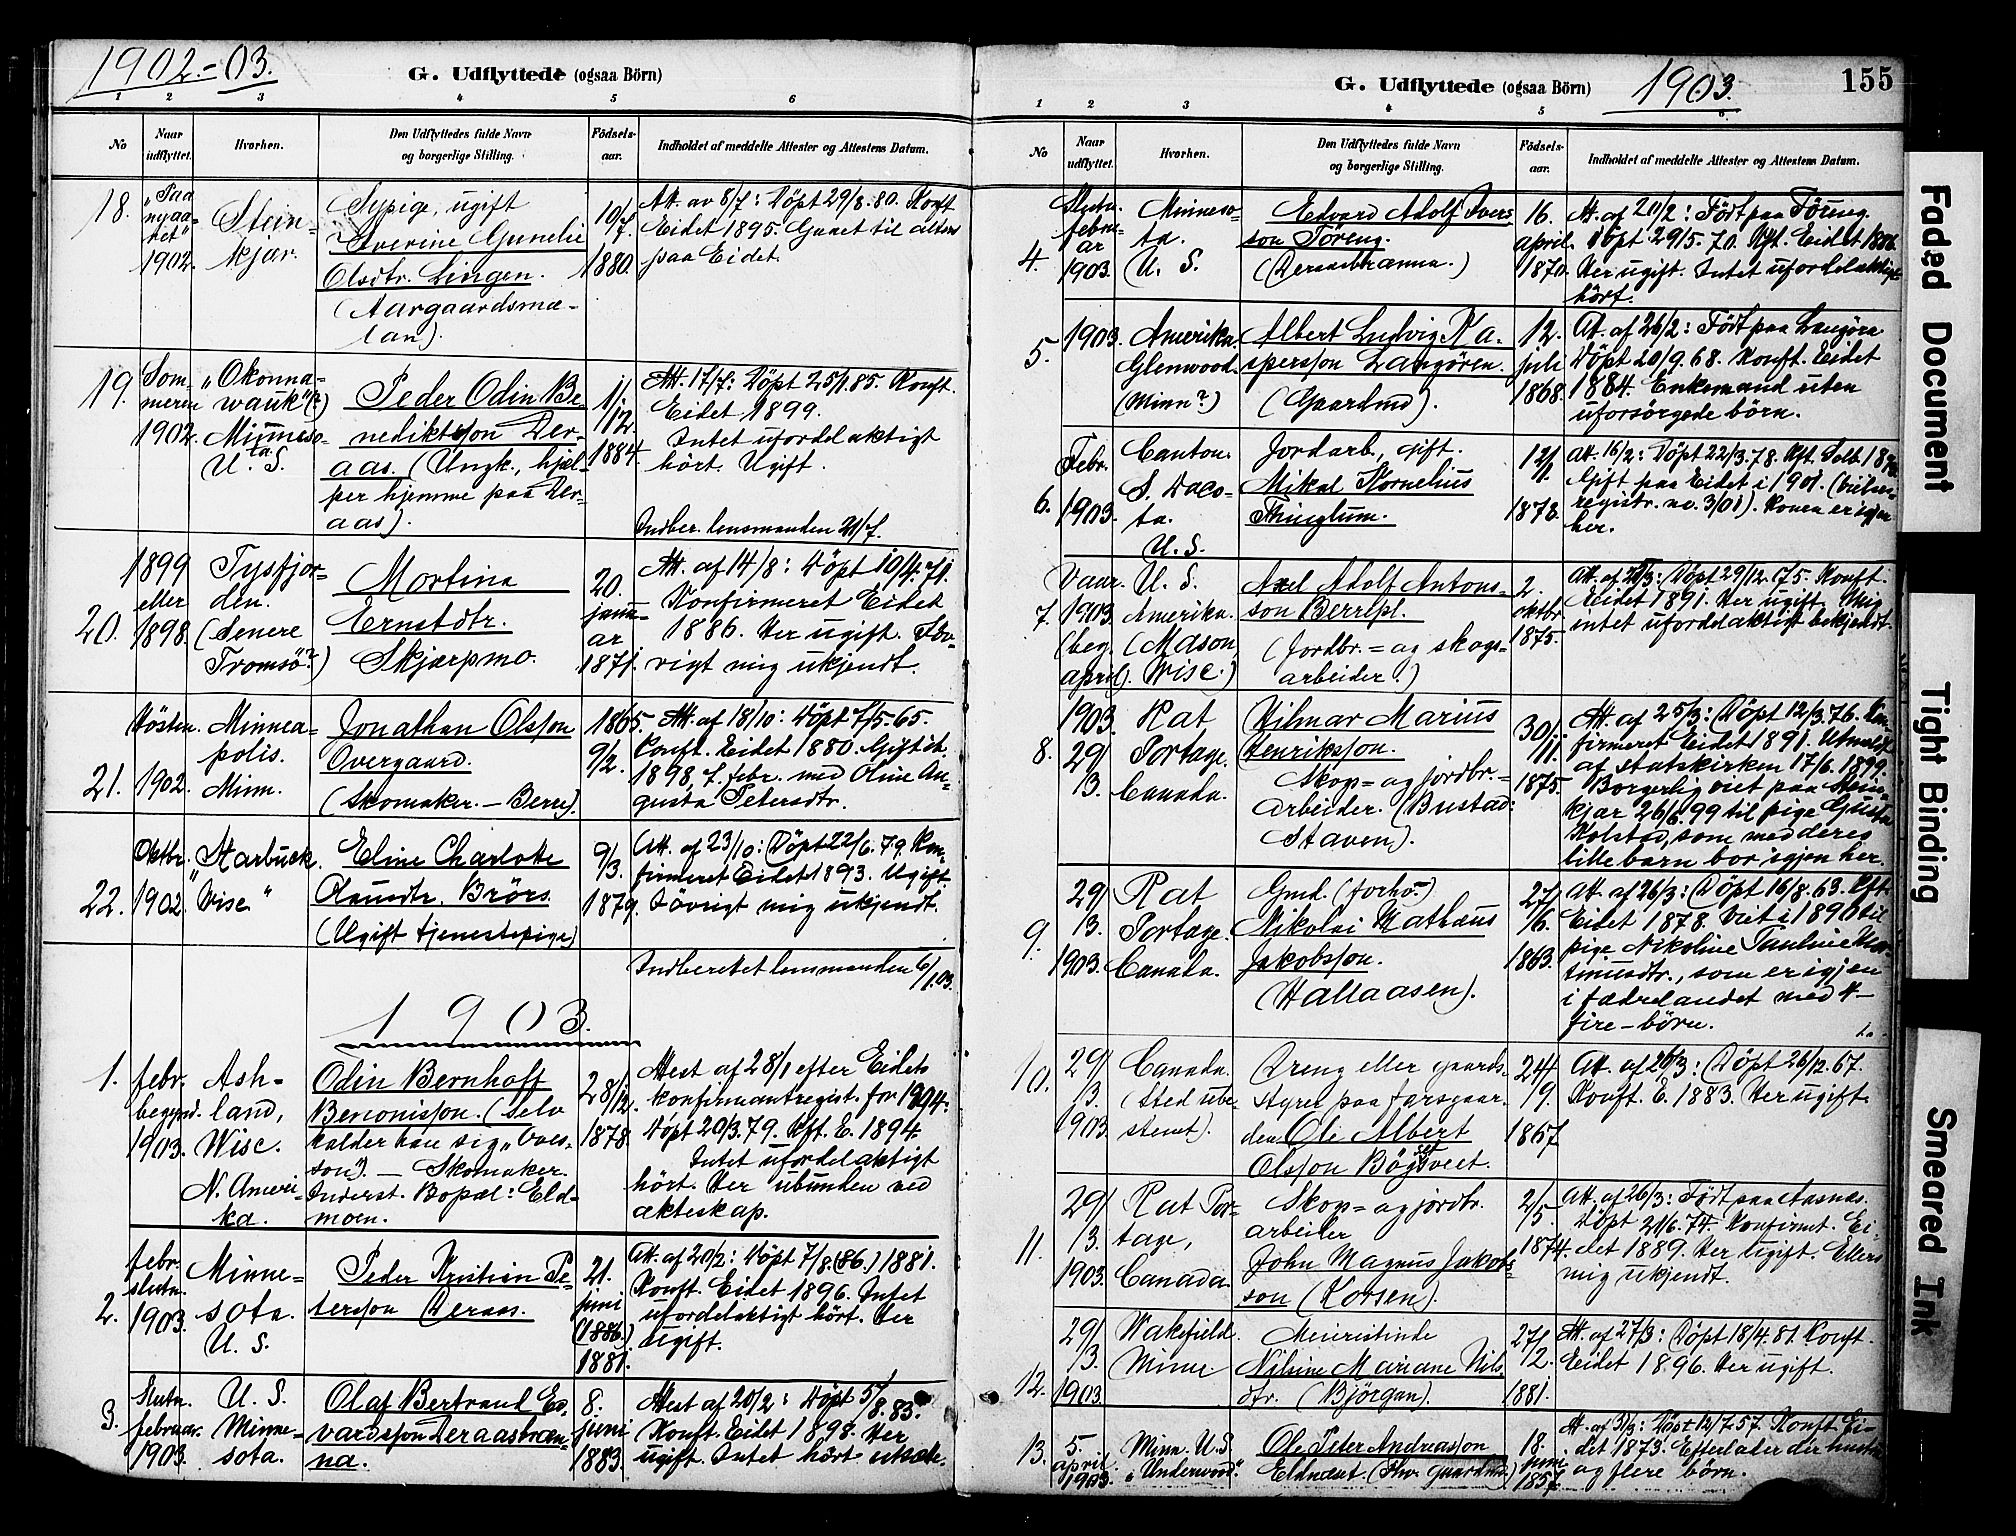 1902-03.
G. Udflyttede (ogsaa Börn)
1 2 3 4 5 6
No
Naar udflyttet.
Hvorhen.
Den Udflyttedes fulde Navn og borgerlige Stilling.
Födsels-aar.
Indholdet af meddelte Attester og Attestens Datum.
18.
"Paa
nyaa-
ret"
1902.
Stein-
kjær.
Sypige, ugift
Gunelie
Olsdtr. Lingen.
(Aargaardsmæ-
lan).
10/7.
1880.
Att. av 8/7: Döpt 29/8.80. Konft
Eidet 1895. Gaaet til alters
paa Eidet.
19.
Som-
meren
1902.
"Okonna-
wauk"(?)
Minneso-
ta
U.S.
Peder Odin Be-
nediktsson Der-
aas. (Ungk., hjæl-
per hjemme paa Der-
aas).
11/12.
1884.
Att. 17/7: Döpt 25/1.85. Konft.
Eidet 1899.
Intet ufordelaktigt
hört. Ugift.
Indber. lensmanden 21/7.
20.
1899
eller
1898.
Tysfjor-
den.
(Senere
Tromsö?)
Mortina
Ernstdtr.
Skjærpmo.
20.
janu-
ar
1871.
Att. af 14/8: Döpt 10/4.71.
Konfirmeret Eidet
1886. Her ugift. Föv-
rigt mig ukjendt.
21.
Hösten.
1902.
Minnea-
polis.
Minn.
Jonathan Olsson
Overgaard.
(Skomaker. - Berre).
1865.
9/2.
Att. af 18/10: Döpt 7/5.65.
Konft. Eidet 1880. Gift
1898, 7. febr. med Oline Au-
gusta Petersdtr.
22.
Oktbr.
1902.
"Starbuck.
Wisc."
Eline Charlotte
Brörs.
(Ugift tjenestepige)
9/3.
1879.
Att. af 23/10: Döpt 22/6.79. Kon-
firmeret Eidet 1893. Ugift.
Iövrigt mig ukjendt.
Indberettet lensmanden 6/1.03.
1903.
1.
febr.
begynd.
1903.
Ash-
land,
Wisc.
N. Ameri-
ka.
Odin Bernhoff
Benonisson. (Selv
kalder han sig "Oves-
son"). - Skomaker.
Inderst. Bopæl: Eld-
moen.
28/12.
1878.
Attest af 28/1 efter Eidets
konfirmantregist. for 1894.
Döpt 20/3.79. Kft. E. 1894.
Intet ufordelaktigt
hört. Her ubunden ved
ækteskap.
2.
febr.
slutn.
1903.
Minne-
sota.
U. S.
Peder Kristian Pe-
tersson Deraas.
21.
juni
(1886.)
1881.
Att. af 20/2: Döpt 7/8.(86.) 1881.
Konft. Eidet 1896. Intet
ufordelaktigt hört. Her
ugift.
3.
Slutn.
februar.
1903.
U. S.
Minne-
sota.
Olaf Bertrand Ed-
vardsson Deraasbræn-
na.
8.
juni
1883.
Attest af 20/2: Döpt 5/8.83.
Konft. Eidet 1898. Her
ugift. Intet hört
G. Udflyttede (ogsaa Börn)
1903.
155
1 2 3 4 5 6
No
Naar udflyttet.
Hvorhen.
Den Udflyttedes fulde Navn og borgerlige Stilling.
Födsels-aar.
Indholdet af meddelte Attester og Attestens Datum.
4.
Slutn.
febru-
ar
1903.
Minneso-
ta.
(U. S.
Edvard Adolf Ivers
son Töreng.
(Deraasbrænna.)
16.
april.
1870.
At. af 20/2: Födt paa Töreng.
Döpt 29/5.70. Kft. Eidet
Her ugift. Intet ufordelaktigt
hört.
5.
1903.
Amerika.
Glenwood.
(Minn?)
Albert Ludvig Ka-
spersson Langören.
(Gaardmd).
12.
juli
1868.
At. af 26/2: Födt paa Langören
Döpt 20/9.68. Konft. Eidet
1884. Enkemand uten
uforsörgede börn.
6.
Febr.
1903.
Canton.
S. Daco-
ta.
U. S.
Jordarb., gift.
Mikal Kornelius
Thinglum.
12/1.
1878.
At. 16/2: Döpt 22/3.78. Kft. Selb.
Gift paa Eidet i 1901. (vielses-
registr. no. 3/01). Konen er igjen
her.
7.
Vaar.
1903.
(beg.
april).
U. S.
Amerika.
(Mason,
Wisc.)
Axel Adolf Antons-
son
(Jordbr.= og skogs-
arbeider.)
2.
oktbr.
1875.
Döpt 29/12.75. Konft.
Eidet 1891. Her ugift. Mig
intet ufordelaktigt bekjendt.
8.
1903.
29/3.
Rat
Portage.
Canada.
Hilmar Marius
Henriksson.
Skog= og jordbr.=
arbeider. (Bustad:
Staven).
30/11.
1875.
Att. af 25/3: Döpt 12/3.76. Kon-
firmeret Eidet 1891. Utmeldt
af statskirken 17/6.1899.
Borgerlig viet paa Stein-
kjær 26/6.99 til pige Gusta
Holstad, som med deres
lille barn bor igjen her.
9.
29/3.
1903.
Rat
Portage.
Canada.
Gmd. (forhv.)
Nikolai Mathæus
Jakobsson.
(Hallaasen).
27/6.
1863.
At. af 26/3: Döpt 16/8.63. Kft.
Eidet 1878. Viet i 1890 til
pige Nikoline Pauline Mar-
tinusdtr., som er igjen
i fædrelandet med 4-
fire-börn.
10.
29/3.
1903.
Canada.
(Sted ube-
stemt).
Dreng eller gaards-
styrer paa farsgaar-
den Ole Albert
Olsson Bögset
24/9.
1867
At. af 26/3: Döpt 26/12.67.
Konft. E. 1883. Her ugift.
11.
29/3.
1903.
Rat Por-
tage,
Canada.
Skog= og jordbr.
arbeider
John Magnus Jakobs-
son (Korsen).
2/5.
1874.
At. af 26/3: Födt paa Aasnes.
Döpt 21/6.74. Konfirmt. Ei-
det 1889. Her ugift. Ellers
mig ukjendt.
12.
29/3.
1903.
Wakefield.
Minn.
Meieristinde
Nilsine Mariane Nils
dtr. (Björgan).
27/2.
1881.
At. af 27/3: Döpt 18/4.81. Konft.
Eidet 1896. Her ugift.
13.
5.
april.
1903.
Minn. U.S.
"Underwood".
Ole Peter Andreasson
Eldnæst. (Fhv. gaardmd.)
18.
juni
1857.
At. af 31/3: Döpt 12/7.57. Konft. Ei-
det 1873. Efterlader der hustru
og flere börn.
Faded Document
Tight Binding
Smeared Ink